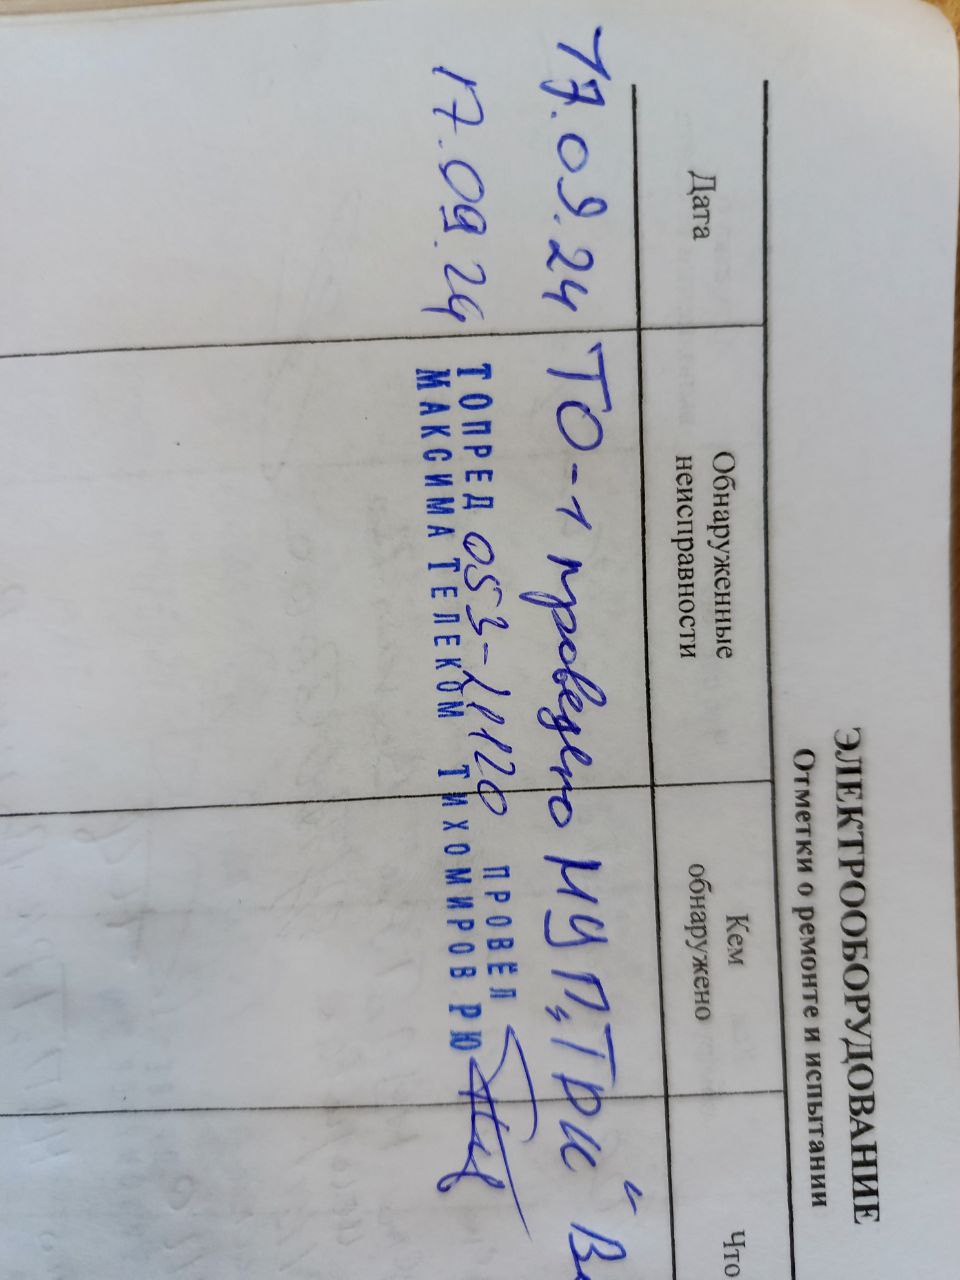 ЭЛЕКТРООБОРУДОВАНИЕ
Отметки о ремонте и испытании
Дата
Обнаруженные
неисправности
Кем
обнаружено
Что
17.09.24 ТО-1 проведено МУП "ТРи"
17.09.24 ТОПРЕД 053-21120 ПРОВЕЛ
МАКСИМА ТЕЛЕКОМ ТИХОМИРОВ РЮ